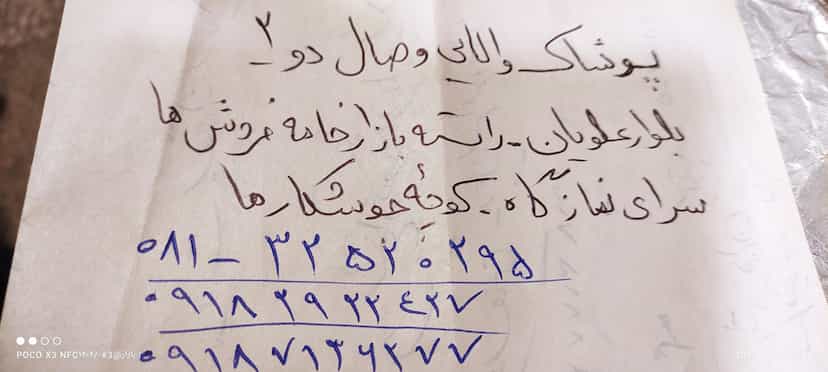 پوشاک والایی وصال دو ۲
بلوار علویان - راسته بازار خامه فروش ها
سرای نمازگاه - کوچهٔ جوشکارها
۰۸۱ - ۳۲ ۵۲۰ ۲۹۵
۰۹۱۸ ۲۹ ۲۲ ۴۲۷
۰۹۱۸ ۷۱۳ ۶۲۷۷
POCO X3 NFC